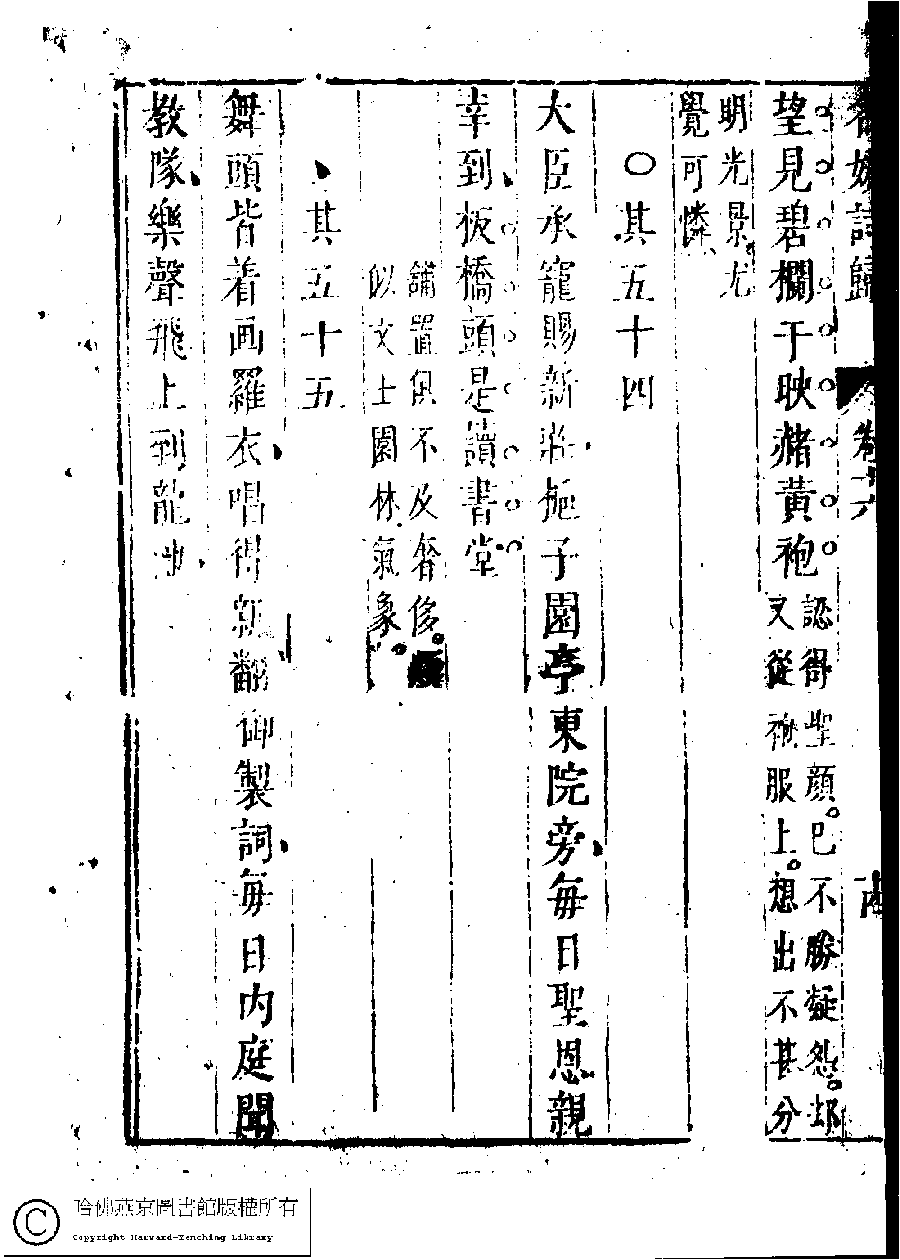 名媛詩歸 卷十六
望見碧欄干映赭黃袍 認得聖顏。已不勝凝怨。却
又從袍服上。想出不甚分
明光景尤
覺可憐、
○其五十四
大臣承寵賜新莊梔子園亭東院旁每日聖恩親
幸到板橋頭是讀書堂
舖置俱不及奢侈。
似文士園林氣象。
、其五十五
舞頭皆着画羅衣唱得新翻御製詞每日內庭聞
教隊樂聲飛上到龍池
哈佛燕京圖書館版權所有
Copyright Harvard-Yenching Library